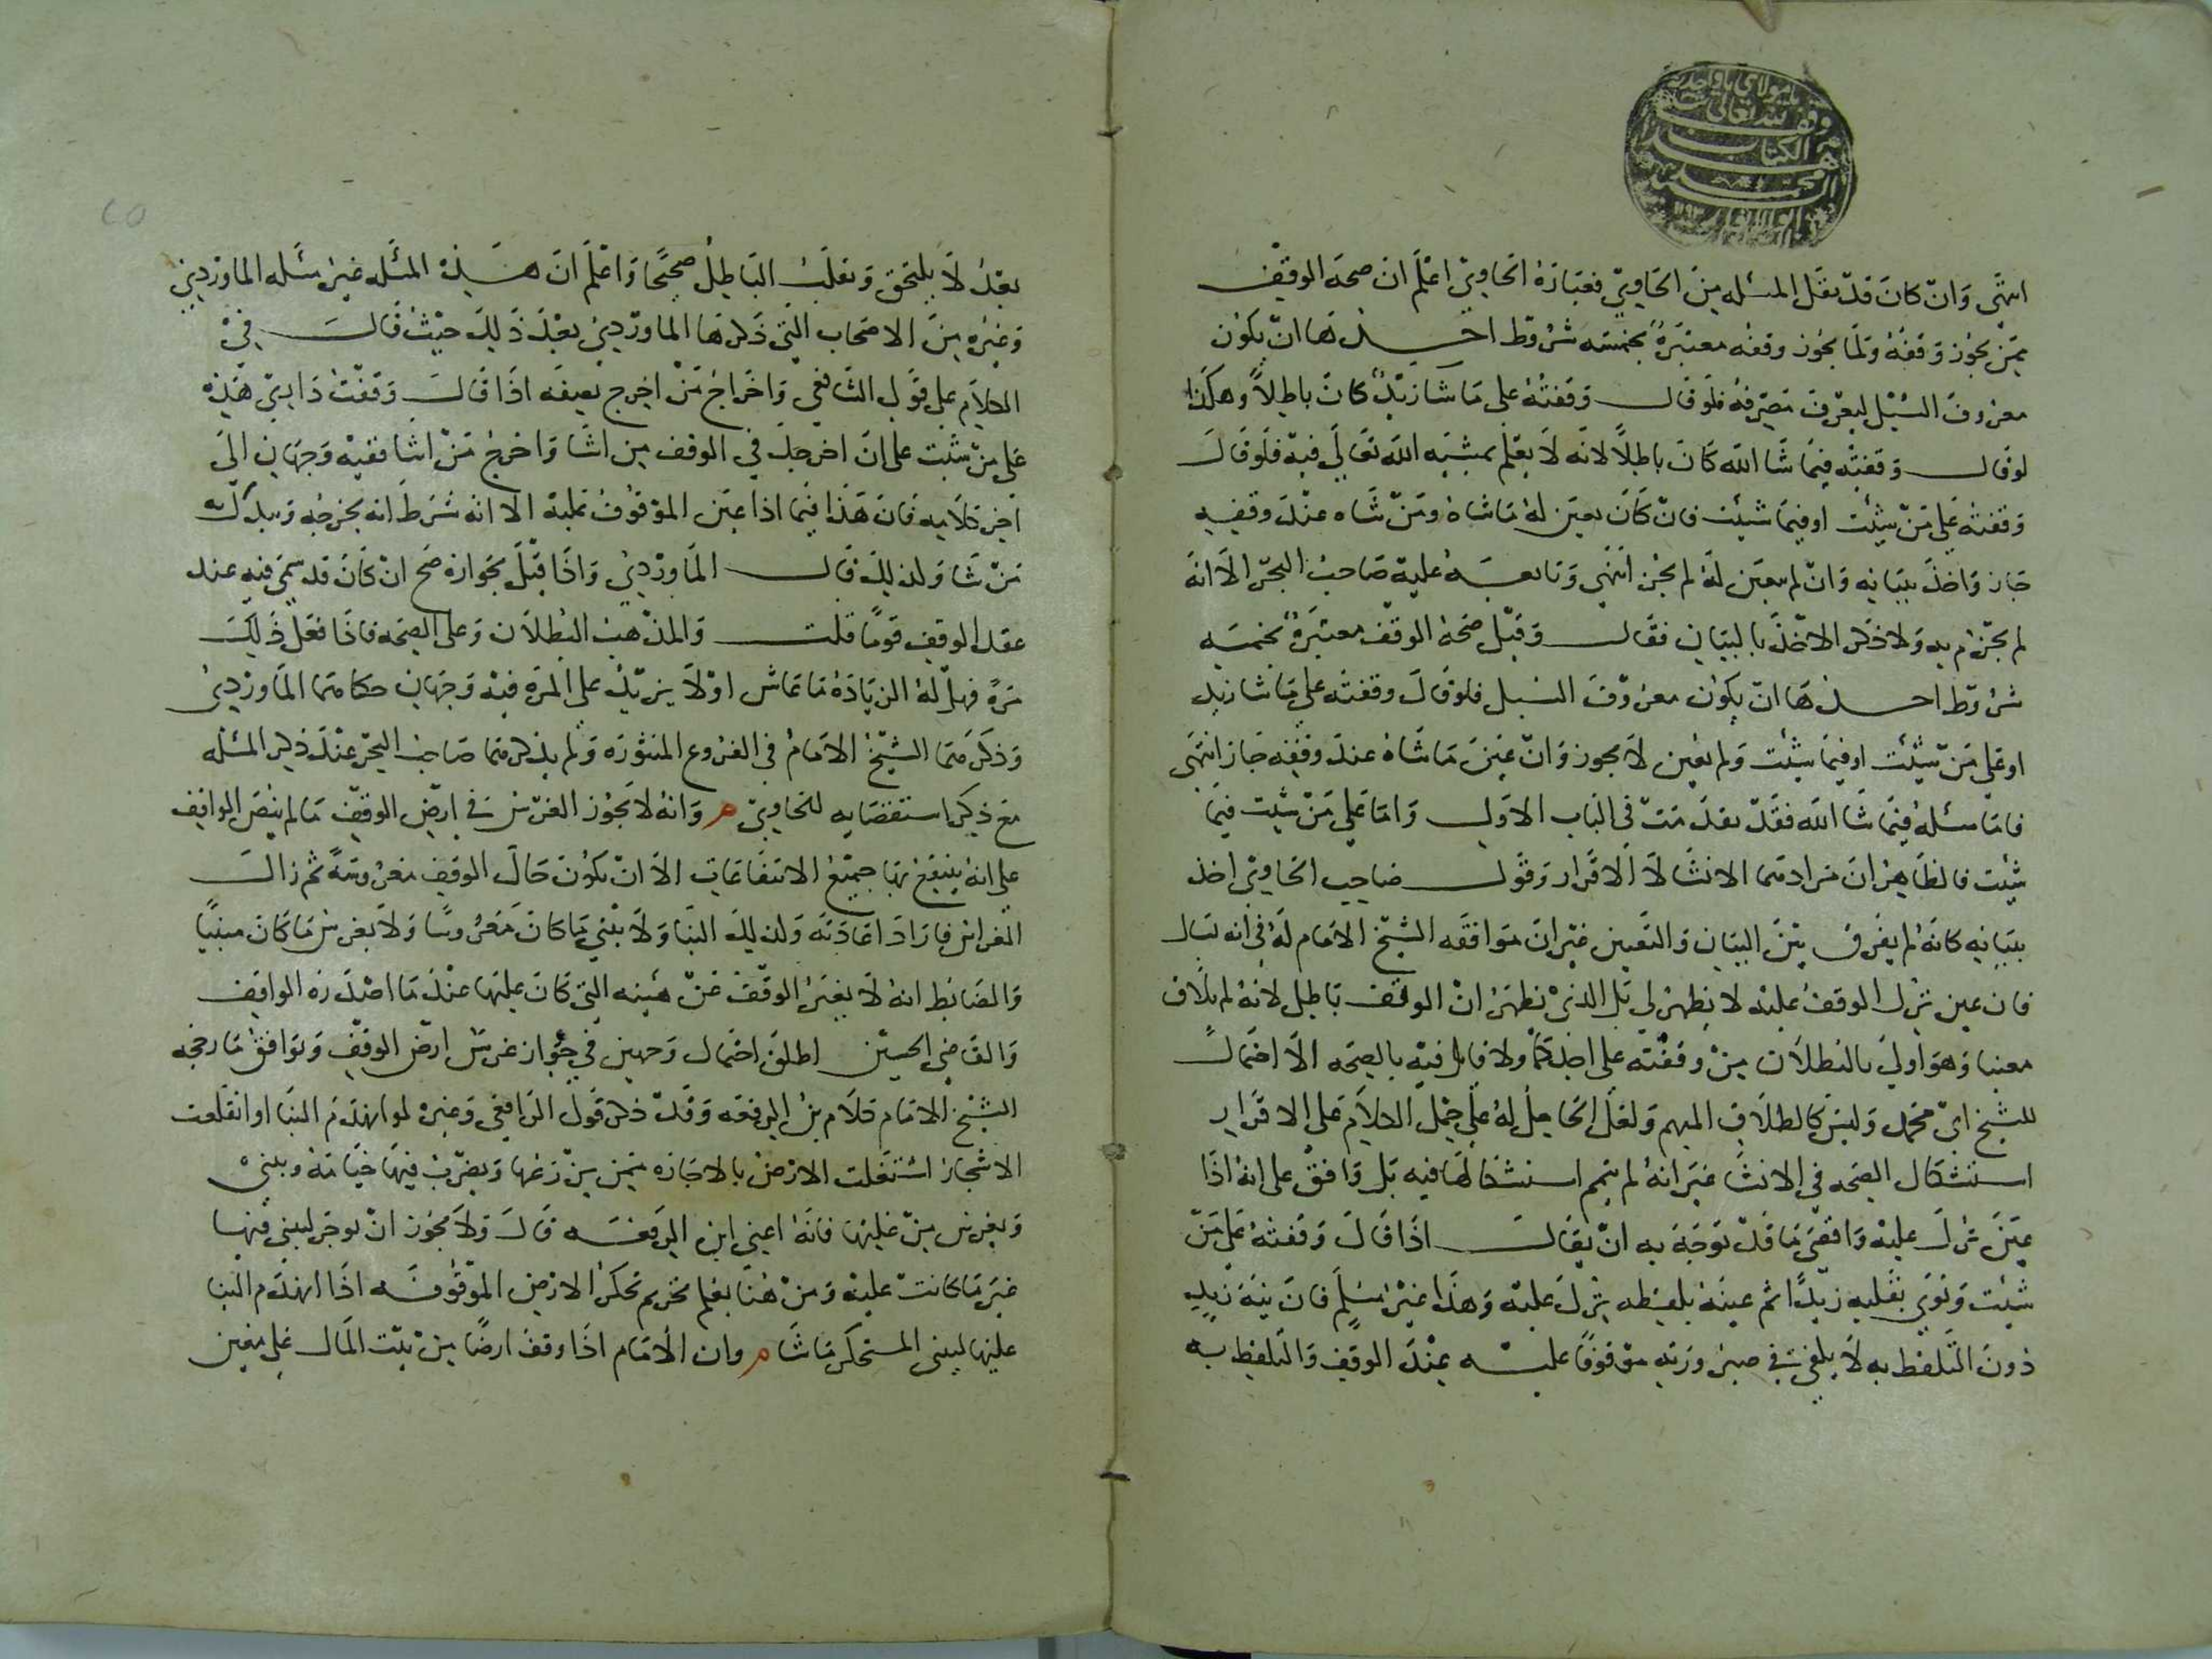 وقف لله تعالى
الكتاب
انتهى وان كان قد نقل المسئله من الحاوي فعبارة الحاوي اعلم ان صحه الوقف
ممن يجوز وقفه ولما يجوز وقفه معتبرة بخمسه شروط احدها ان يكون
معروف السبل ليعرف مصرفه فلو قال وقفته على ما شا زيد كان باطلا وهكذا
لو قال وقفته فيما شا الله كان باطلا لانه لا يعلم بمشيه الله تعالى فيه فلو قال
وقفته على من شئت او فيما شيئت فان كان يعين له ما شاه ومن شاه عند وقفه
جاز واخذ ببيانه وان لم يعين له لم يجز انتهى وتابعه عليه صاحب البحر الا انه
لم يجزم به ولا ذكر الاخذ بالبيان فقال وقيل صحة الوقف معتبرة بخمسه
شروط احدها ان يكون معروف السبل فلو قال وقفته على ما شا زيد
او على من شيئت او فيما شئت ولم يعين لا يجوز وان عين ما شاه عند وقفه جاز انتهى
فاما مسئلة فيما شا الله فقد تقدمت في الباب الاول واما على من شئت فيما
شئت فالظاهر ان مرادهما الانشا لا الاقرار وقول صاحب الحاوي اخذ
ببيانه كانه لم يفرق بين البيان والتعيين غير ان موافقه الشيخ الامام له في انه
فان عين نزل الوقف عليه لا يظهر لي بل الذي نظهر ان الوقف باطل لانه لم يلاق
معينا وهو اولى بالبطلان من وقفته على احدكما ولا قايل فيه بالصحه الا احتمال
للشيخ ابي محمد وليس كالطلاق المبهم ولعل الحامل له على حمل الكلام على الاقرار
استشكال الصحه في الانشا غير انه لم يتمم استشكالها فيه بل وافق على انه اذا
عين نزل عليه واقصى ما قد توجه به ان يقال اذا قال وقفته على من
شيئت ونوي بقلبه زيدا ثم عينه بلفظه نزل عليه وهذا غير مسلم فان نية زيد
دون التلفظ به لا يلغى في صيرورته موقوفا عليه عند الوقف والتلفظ به
بعد لا يلتحق وتقلب الباطل صحيحا واعلم ان هذه المسئله غير مسئله الماوردي
وغيره من الاصحاب التي ذكرها الماوردي بعيد ذلك حيث قال في
الكلام على قول الشافعي واخراج من اخرج بصفه اذا قال وقفت داري هذه
على من شئت على ان اخر جل في الوقف من اشا واخرج من اشا ففيه وجهان الى
اخر كلامه فان هذا فيما اذا عين الموقوف عليه الا انه شرط انه يخرجه ويبدل به
من شا ولذلك قال الماوردي واذا قيل بجوازه صح ان كان قد سمى فيه عند
عقد الوقف قوما قلت والمذهب البطلان وعلى الصحه فاذا فعل ذلك
مرة فهل له الزيادة ما عاش او لا يزيد على المرة فيه وجهان حكاهما الماوردي
وذكرهما الشيخ الامام في الفروع المنثوره ولم يذكرهما صاحب البحر عند ذكر المسئله
مع ذكر استقصايه للحاوي م وانه لا يجوز الغرس في ارض الوقف ما لم ينص الواقف
على انه ينتفع بها جميع الانتفاعات الا ان تكون حال الوقف مغروسة ثم زال
الغراس فاراد اعادته وكذلك البنا ولا يبني ما كان مغروسا ولا يغرس ما كان مبنيا
والضابط انه لا يغير الوقف عن هيئته التي كان عليها عند ما اصدره الواقف
والقاضي الحسين اطلق احتمال وجهين في جواز غرس ارض الوقف ويوافق ما رجحه
الشيخ الامام كلام بن الرفعه وقد ذكر قول الرافعي وغيره لو انهدم البنا او انقلعت
الاشجار استغلت الارض بالاجاره ممن يزرعها ويضرب فيها خيامه ويبني
ويغرس من عليها فانه اعني ابن الرفعه قال ولا يجوز ان توجر ليبني فيها
غير ما كانت عليه ومن هنا يعلم تحريم تحكر الارض الموقوفه اذا انهدم البنا
عليها ليبنى المستحكر ما شا م وان الامام اذا وقف ارضا من بيت المال على معين